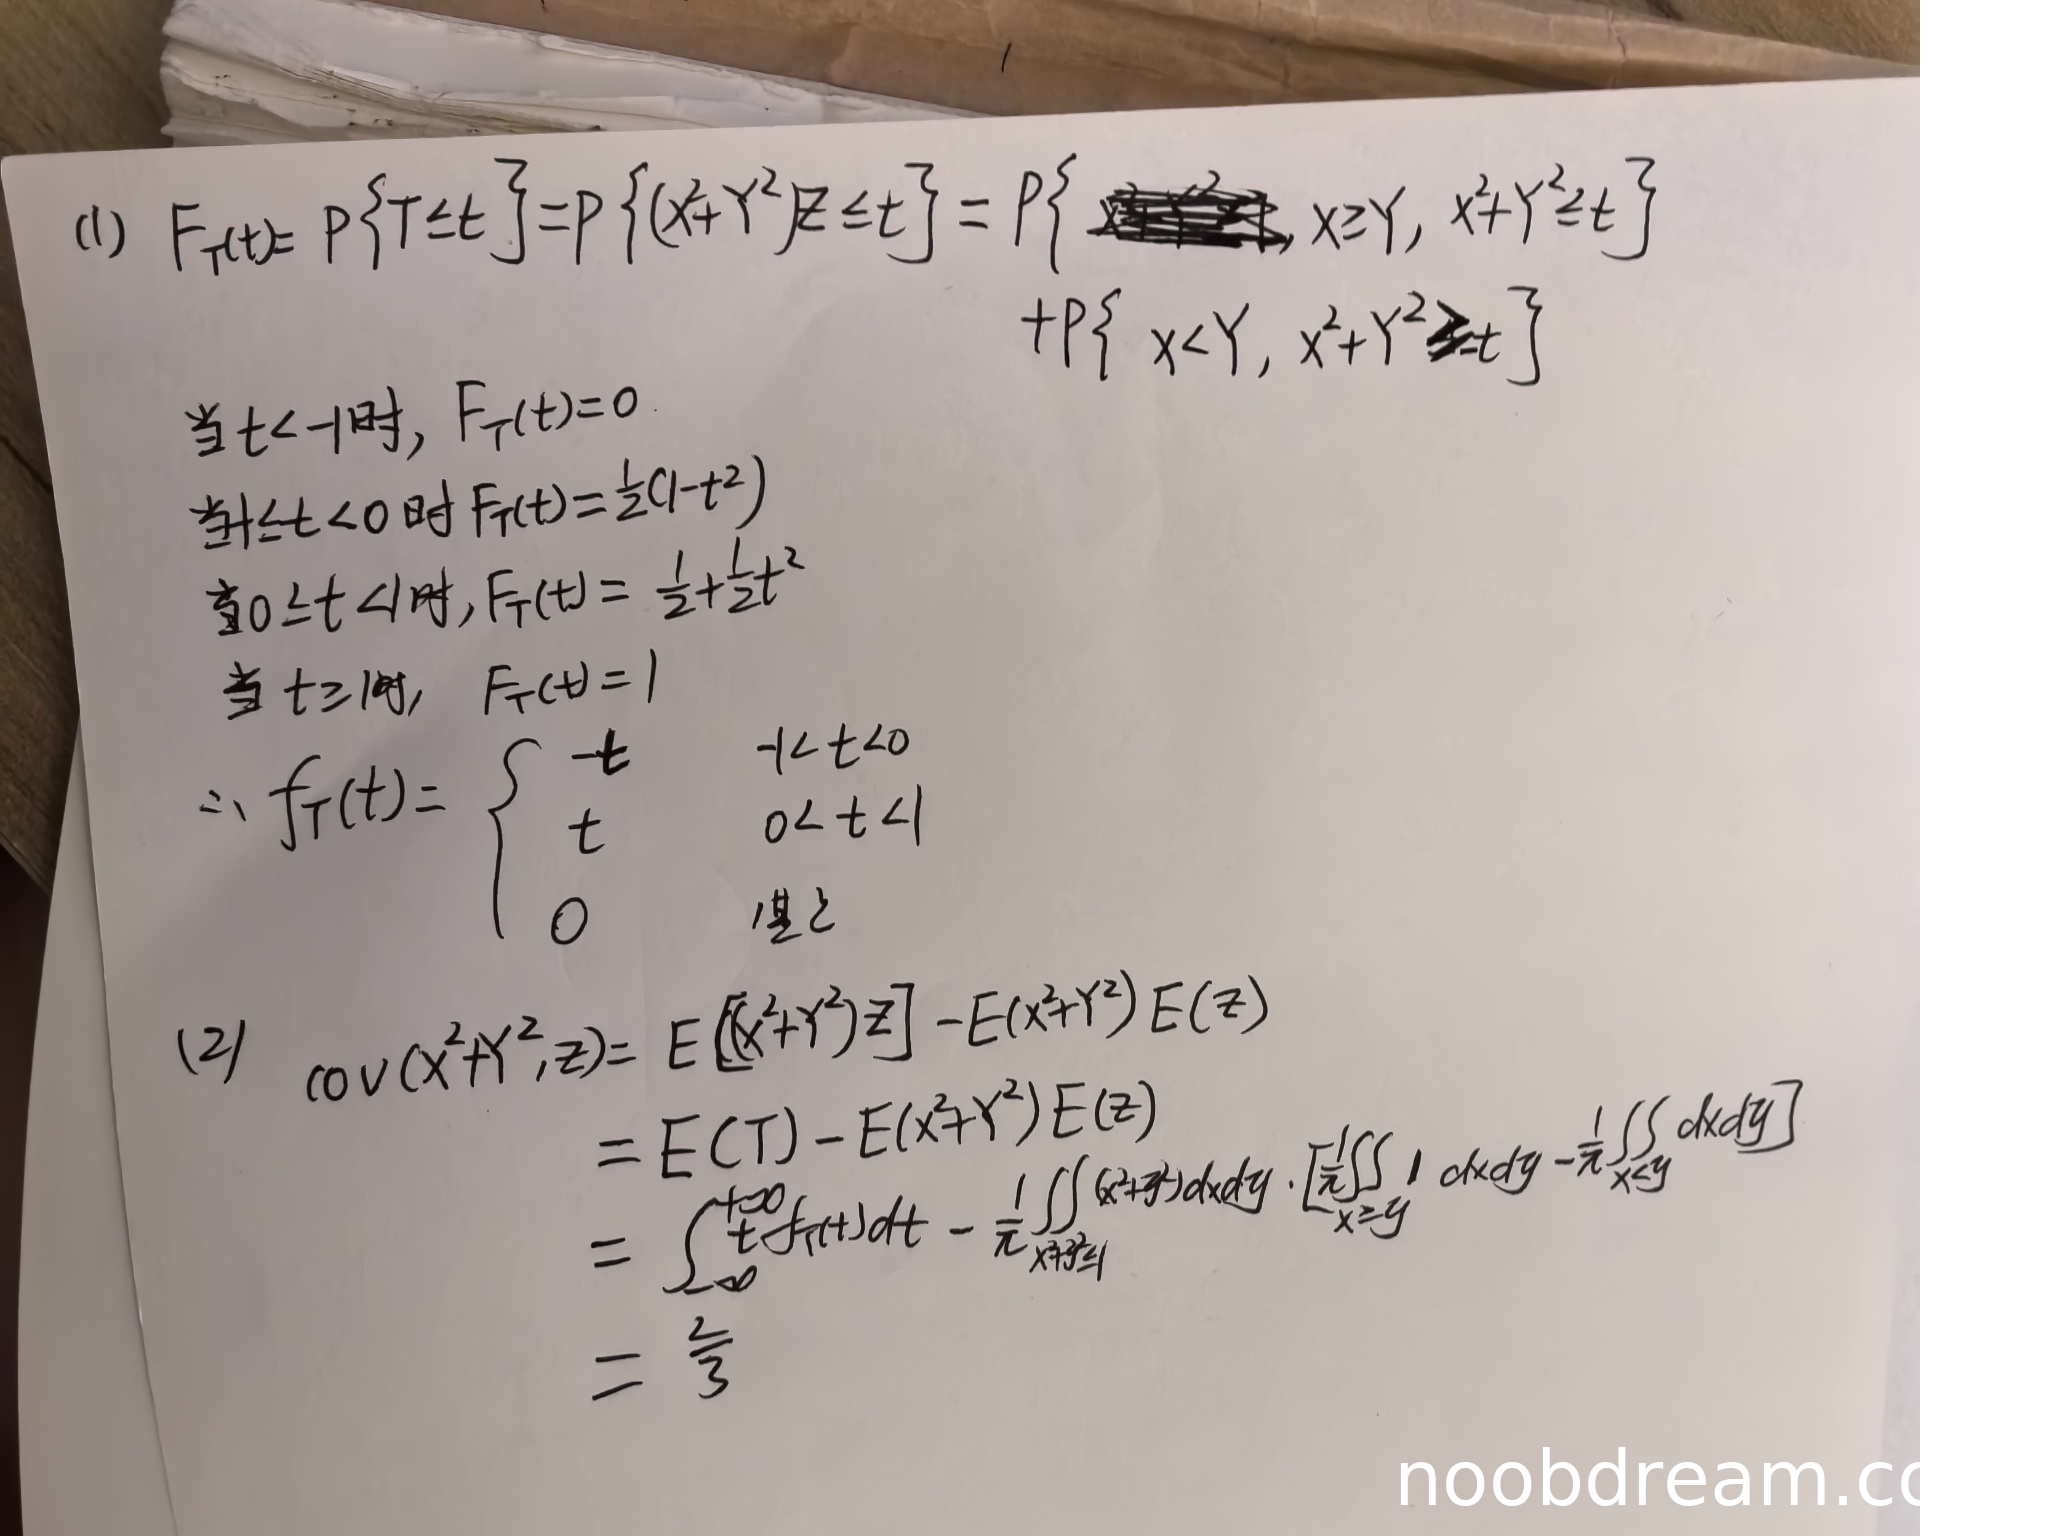 (1) F_T(t)= P{T≤t}=P{(X²+Y²)Z≤t} = P{ , X≥Y, X²+Y²≤t}
+P{ X<Y, X²+Y² t}
当t<-1时, F_T(t)=0
当-1≤t<0时F_T(t)=½(1-t²)
当0≤t<1时, F_T(t)= ½+½t²
当t≥1时, F_T(t)=1
∴ f_T(t)= { -t -1<t<0
t 0<t<1
0 其它
(2) cov(X²+Y²,Z)= E[(X²+Y²)Z] -E(X²+Y²)E(Z)
=E(T)-E(X²+Y²)E(Z)
= ∫_{-∞}^{+∞} t f_T(t)dt - 1/π ∬_{x²+y²≤1} (x²+y²)dxdy · [1/π ∬_{x≥y} 1 dxdy - 1/π ∬_{x<y} dxdy]
= 2/3
noobdream.co